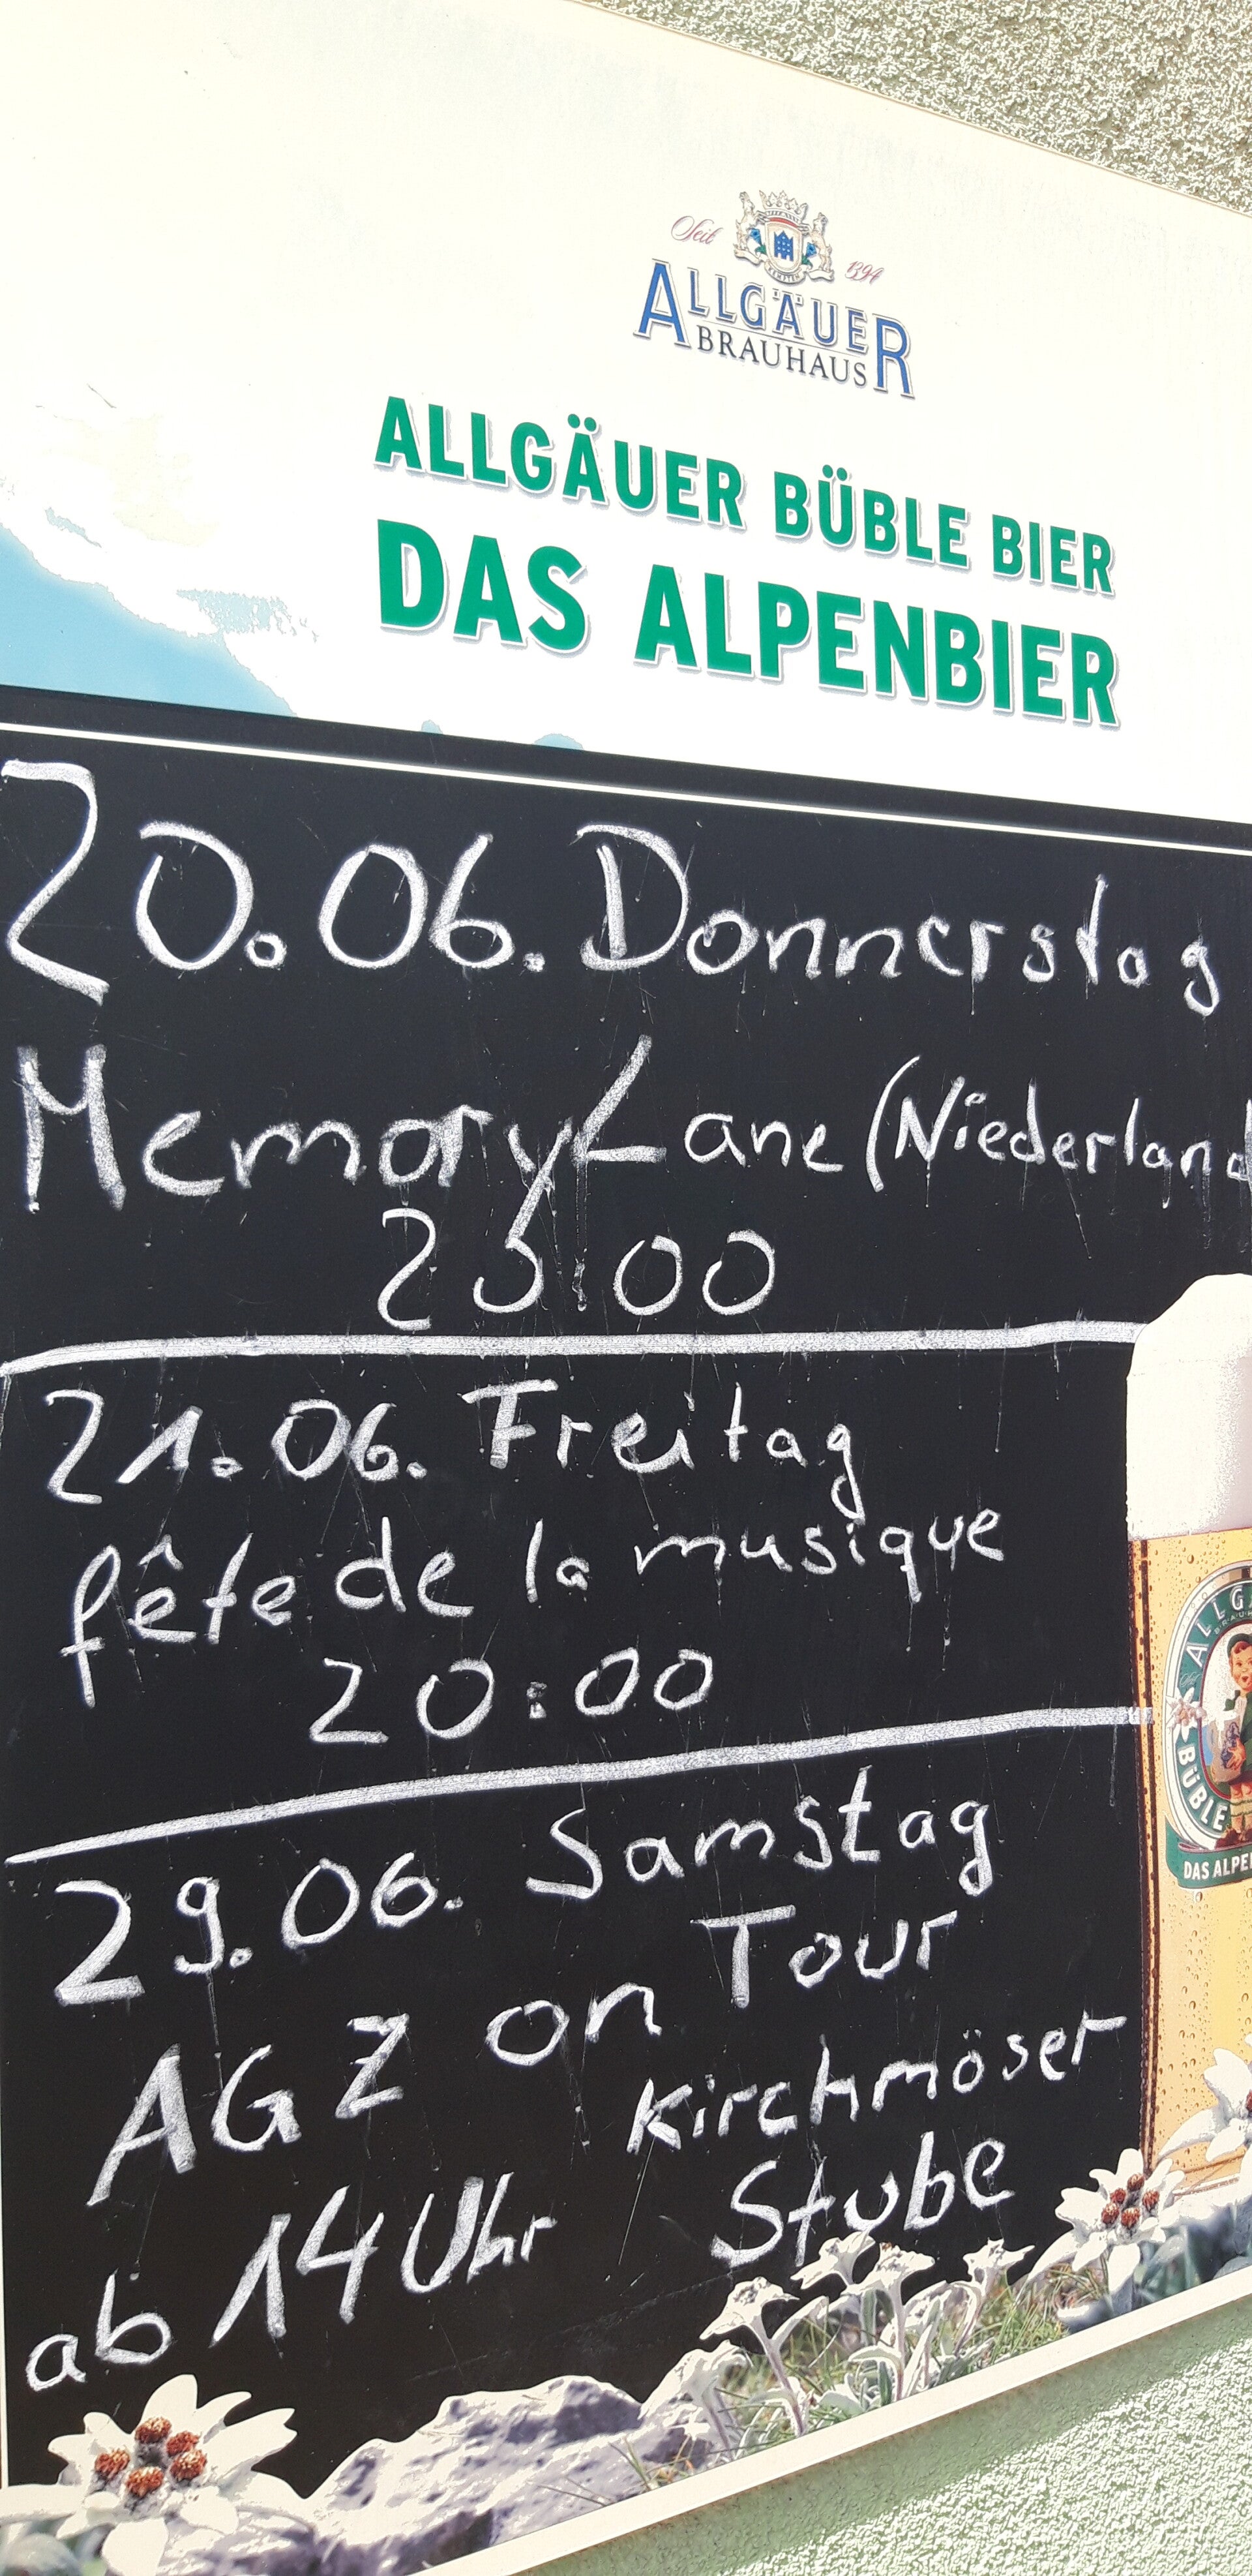 Seit 1394
ALLGÄUER
BRAUHAUS
ALLGÄUER BÜBLE BIER
DAS ALPENBIER
20.06. Donnerstag
Memory Lane (Niederland
23:00
21.06. Freitag
fête de la musique
20:00
29.06. Samstag
AGZ on Tour
Kirchmöser
ab 14 Uhr Stube
ALLGÄ
BÜBLE
DAS ALPE